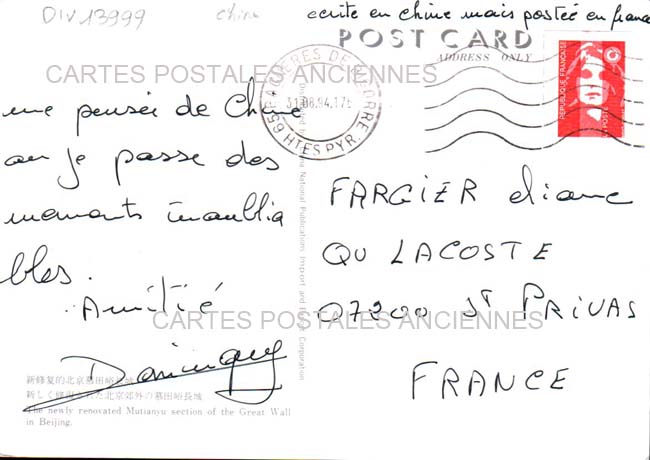 DIV 13999 chine
écrite en chine mais postée en france
POST CARD
ADDRESS ONLY
CARTES POSTALES ANCIENNES
31.08.94.17
65 HTES PYR.
REPUBLIQUE FRANÇAISE
une pensée de Chine
ou je passe des
moments inoublia
bles.
Amitié
Dominique
FARGIER eliane
QU LACOSTE
07200 ST PRIVAS
FRANCE
CARTES POSTALES ANCIENNES
National Publications Import and Export Corporation
新修复的北京慕田峪长城
新しく修復された北京郊外の慕田峪長城
The newly renovated Mutianyu section of the Great Wall
in Beijing.